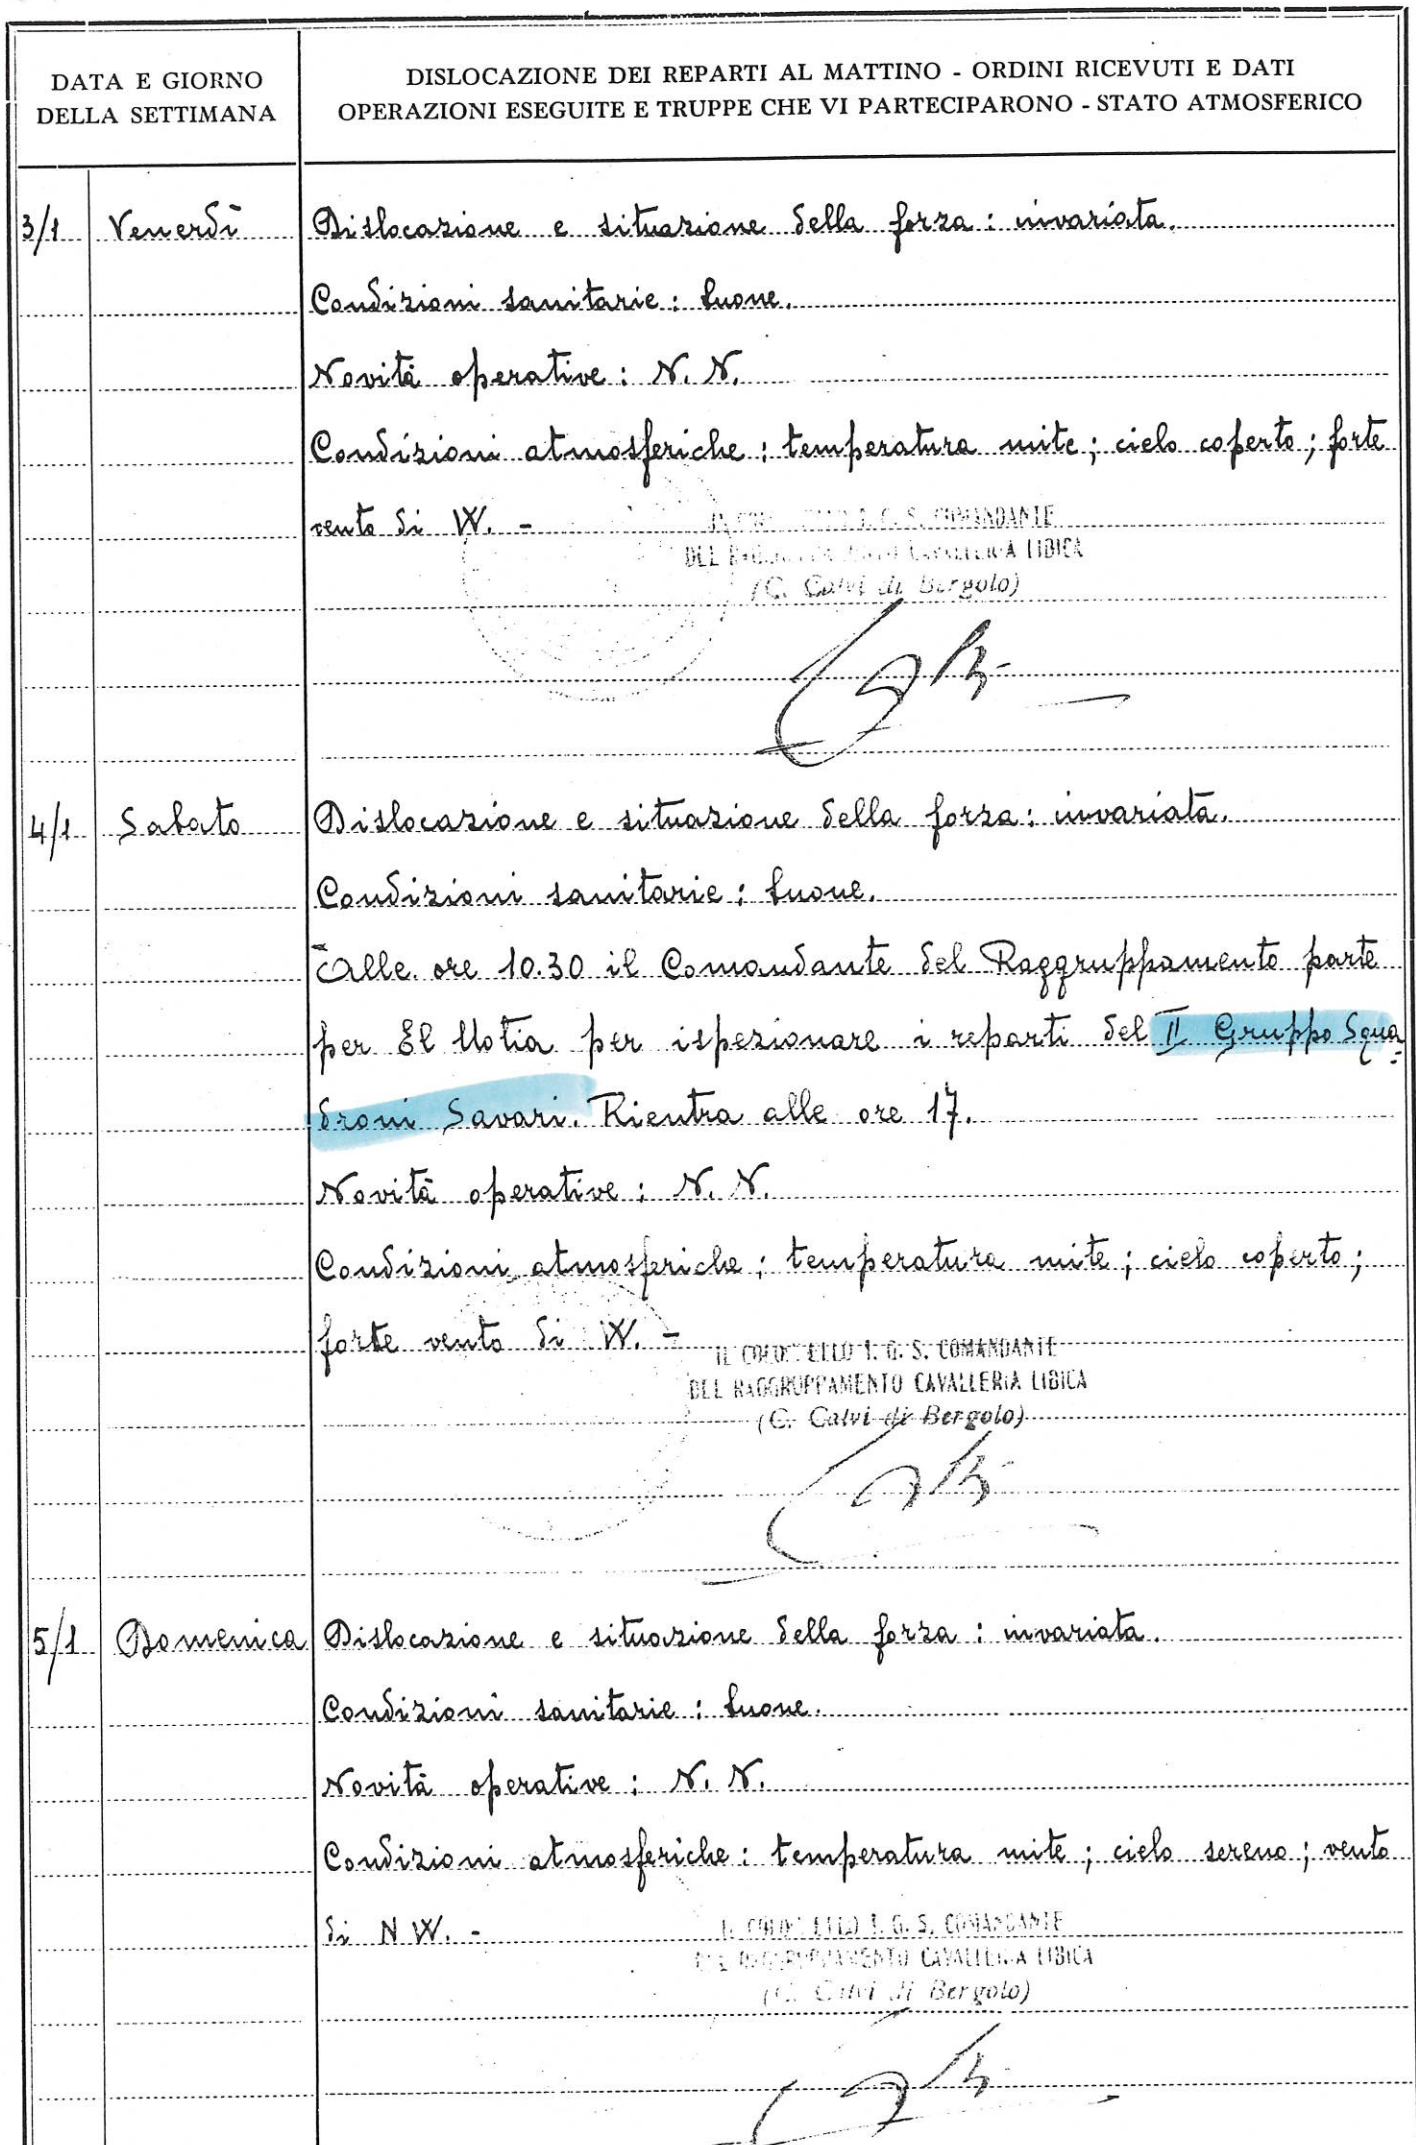 DATA E GIORNO
DELLA SETTIMANA
DISLOCAZIONE DEI REPARTI AL MATTINO - ORDINI RICEVUTI E DATI
OPERAZIONI ESEGUITE E TRUPPE CHE VI PARTECIPARONO - STATO ATMOSFERICO
3/1 Venerdì Dislocazione e situazione della forza: invariata.
Condizioni sanitarie: buone.
Novità operative: N. N.
Condizioni atmosferiche: temperatura mite; cielo coperto; forte
vento di W. -
I. G. S. COMANDANTE
DEL CAVALLERIA LIBICA
(C. Calvi di Bergolo)
4/1 Sabato Dislocazione e situazione della forza: invariata.
Condizioni sanitarie: buone.
Alle ore 10.30 il Comandante del Raggruppamento parte
per El Uotia per ispezionare i reparti del II Gruppo Squa=
droni Savari. Rientra alle ore 17.
Novità operative: N. N.
Condizioni atmosferiche: temperatura mite; cielo coperto;
forte vento di W. -
IL COLONNELLO I. G. S. COMANDANTE
DEL RAGGRUPPAMENTO CAVALLERIA LIBICA
(C. Calvi di Bergolo)
5/1 Domenica Dislocazione e situazione della forza: invariata.
Condizioni sanitarie: buone.
Novità operative: N. N.
Condizioni atmosferiche: temperatura mite; cielo sereno; vento
di N W. -
IL COLONNELLO I. G. S. COMANDANTE
DEL RAGGRUPPAMENTO CAVALLERIA LIBICA
(C. Calvi di Bergolo)